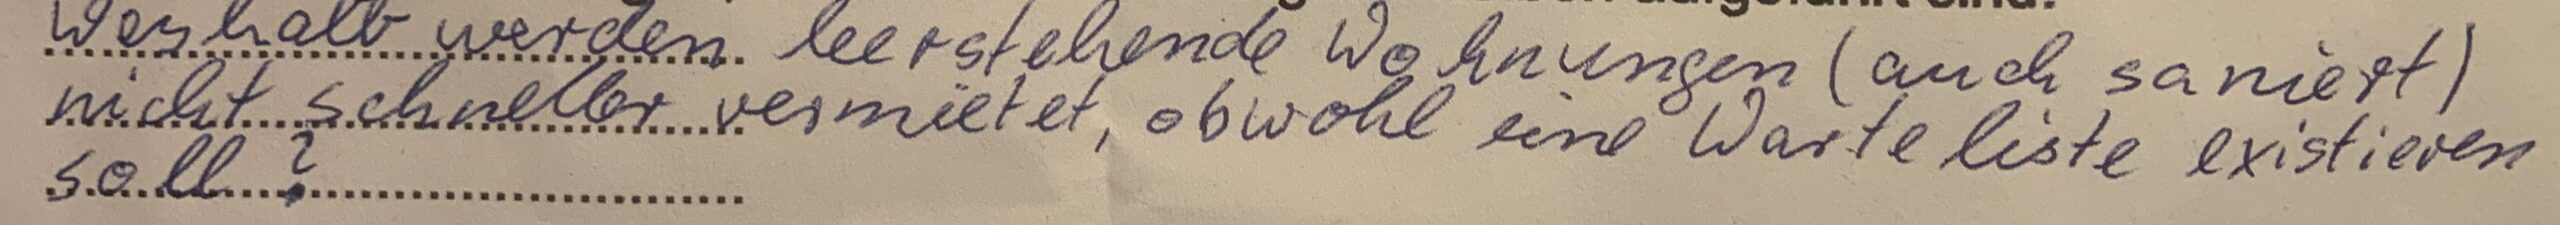 aufgeführt sind?
Weshalb werden leerstehende Wohnungen (auch saniert)
nicht schneller vermietet, obwohl eine Warteliste existieren
soll?